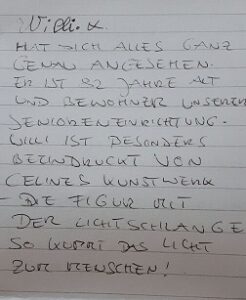 Willi. K.
HAT SICH ALLES GANZ
GENAU ANGESEHEN.
ER IST 82 JAHRE ALT
UND BEWOHNER UNSERER
SENIORENEINRICHTUNG.
WILLI IST BESONDERS
BEEINDRUCKT VON
CELINES KUNSTWERK
- DIE FIGUR MIT
DER LICHTSCHLANGE
SO KOMMT DAS LICHT
ZUM MENSCHEN!